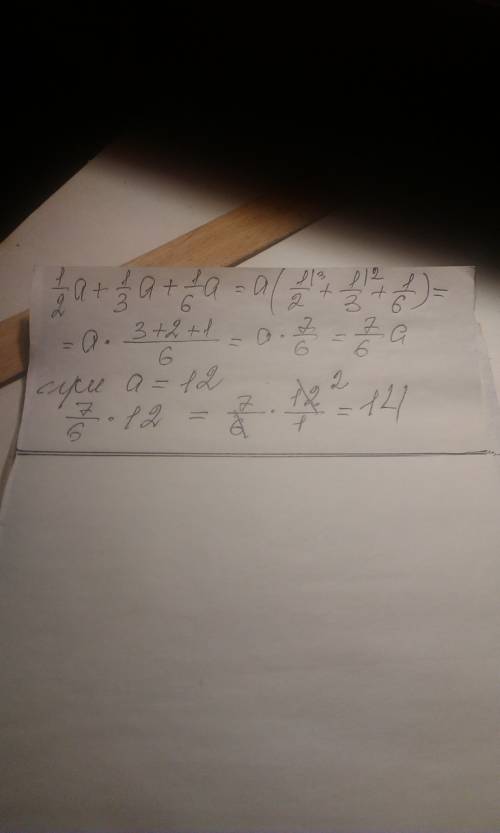 1/2 a + 1/3 a + 1/6 a = a(1/2|³ + 1/3|² + 1/6) =
= a · (3+2+1)/6 = a · 7/6 = 7/6 a
при a = 12
7/6 · 12 = 7/6 · 12/1 2 = 14